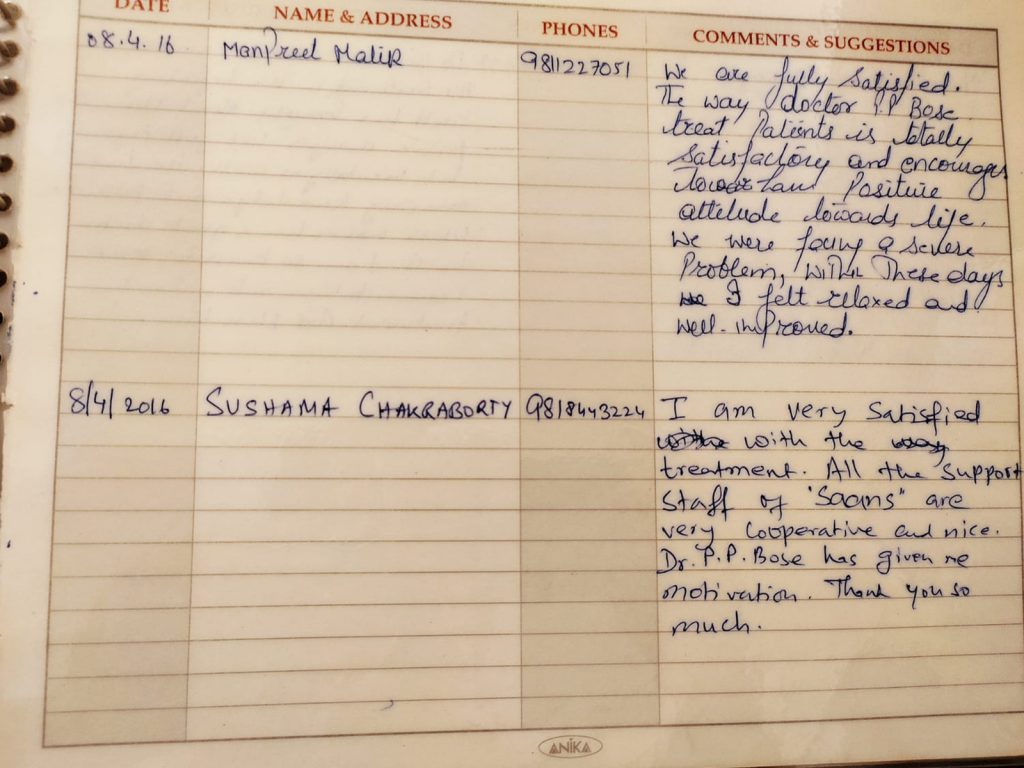 DATE NAME & ADDRESS PHONES COMMENTS & SUGGESTIONS
08.4.16 Manpreet Malik 9811227051 We are fully Satisfied.
The way doctor P.P Bose
treat Patients is totally
Satisfactory and encourages
Positive
attitude towards life.
We were facing a severe
Problem, within These days
I felt relaxed and
well-improved.
8/4/2016 SUSHAMA CHAKRABORTY 9818443224 I am very satisfied
with the
treatment. All the support
staff of "Saans" are
very cooperative and nice.
Dr. P.P. Bose has given me
motivation. Thank you so
much.
ANIKA